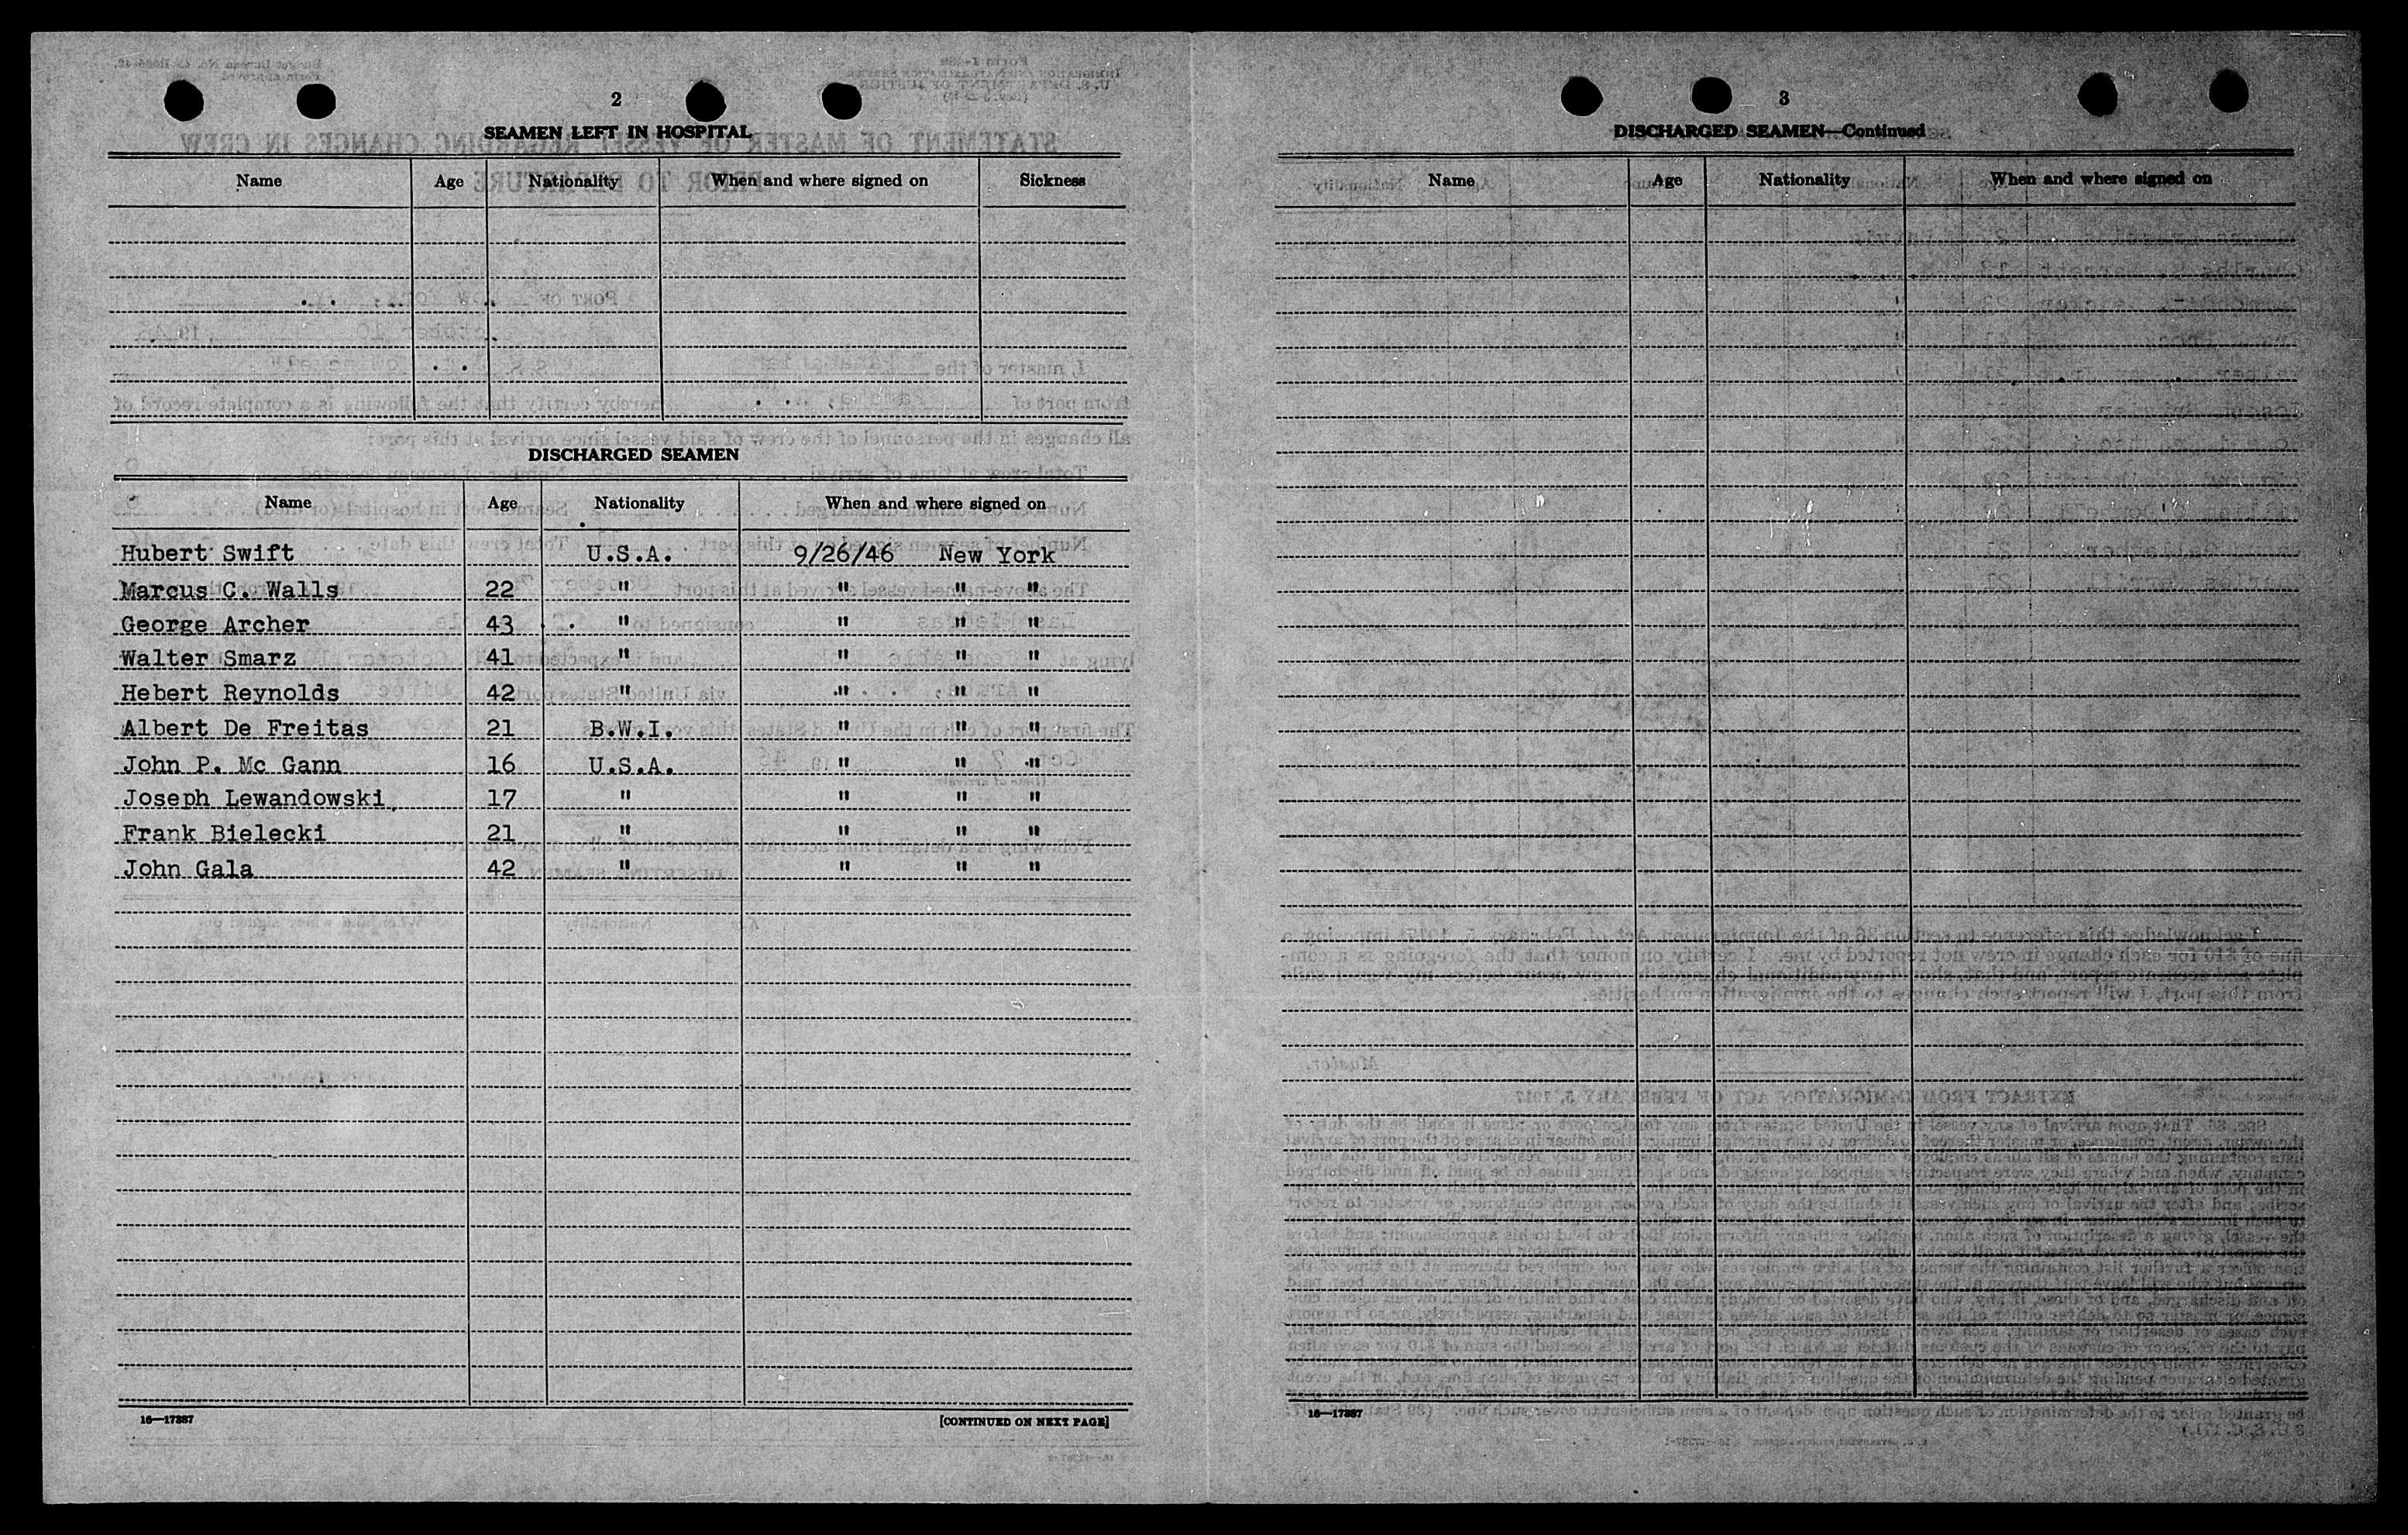 2
SEAMEN LEFT IN HOSPITAL
Name Age Nationality When and where signed on Sickness
DISCHARGED SEAMEN
Name Age Nationality When and where signed on
Hubert Swift U.S.A. 9/26/46 New York
Marcus C. Walls 22 " " " "
George Archer 43 " " " "
Walter Smarz 41 " " " "
Hebert Reynolds 42 " " " "
Albert De Freitas 21 B.W.I. " " "
John P. Mc Gann 16 U.S.A. " " "
Joseph Lewandowski 17 " " " "
Frank Bielecki 21 " " " "
John Gala 42 " " " "
16—17387 [CONTINUED ON NEXT PAGE]
3
DISCHARGED SEAMEN—Continued
Name Age Nationality When and where signed on
16—17387